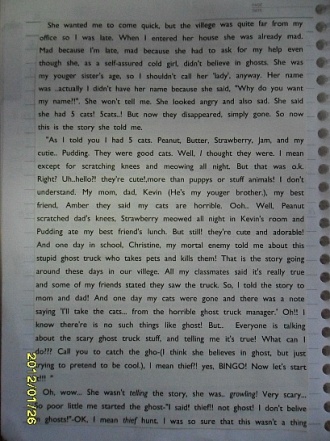 She wanted me to come quick, but the village was quite far from my
office so I was late. When I entered her house she was already mad.
Mad because I'm late, mad because she had to ask for my help even
though she, as a self-assured cold girl, didn't believe in ghosts. She was
my youger sister's age, so I shouldn't call her 'lady', anyway. Her name
was ..actually I didn't have her name because she said, "Why do you
want my name!!". She won't tell me. She looked angry and also sad. She
said she had 5 cats! 5cats..! But now they disappeared, simply gone. So now
this is the story she told me.
"As I told you I had 5 cats. Peanut, Butter, Strawberry, Jam, and my
cutie.. Pudding. They were good cats. Well, I thought they were. I mean
except for scratching knees and meowing all night. But that was o.k.
Right? Uh..hello?! they're cute!..more than puppys or stuff animals! I don't
understand. My mom, dad, Kevin (He's my youger brother.), my best
friend, Amber they said my cats are horrible. Ooh.. Well, Peanut
scratched dad's knees. Strawberry meowed all night in Kevin's room and
Pudding ate my best friend's lunch. But still! they're cute and adorable!
And one day in school, Christine, my mortal enemy told me about this
stupid ghost truck who takes pets and kills them! That is the story going
around these days in our village. All my classmates said it's really true
and some of my friends stated they saw the truck. So, I told the story to
mom and dad! And one day my cats were gone and there was a note
saying 'I'll take the cats... from the horrible ghost truck manager.' Oh!! I
know there're is no such things like ghost! But.. Everyone is talking
about the scary ghost truck stuff, and telling me it's true! What can I
do!!! Call you to catch the gho-(I think she believes in ghost, but just
trying to pretend to be cool.), I mean thief!! yes, BINGO! Now let's start
it!! "
Oh, wow... She wasn't telling the story, she was.. growling! Very scary...
so poor little me started the ghost-"I said! thief!! not ghost! I don't belive
ghosts!"-OK, I mean thief hunt. I was so sure that this wasn't a thing
2012/01/26